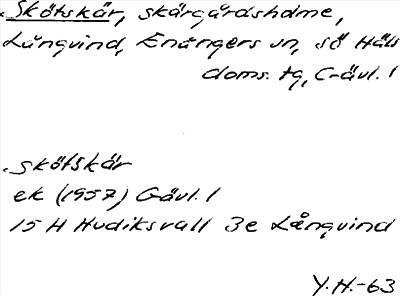 .Skötskär, skärgårdsholme,
Långvind, Enångers sn, sö Häls
doms. tg, Gävl. l
.skötskär
ek (1957) Gävl. l
15 H Hudiksvall 3e Långvind
Y.H.-63